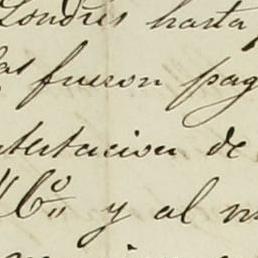 Londres hasta
fueron pag
ntestacion de
y al